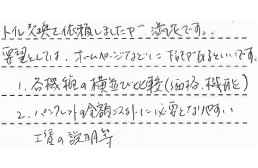 トイレ交換で依頼しましたが、満足です。
要望としては、ホームページなどに下記があるといいです。
1. 各機種の横並び比較(価格、機能)
2. パンフレットの金額プラスαに必要となりやすい
工賃の説明等